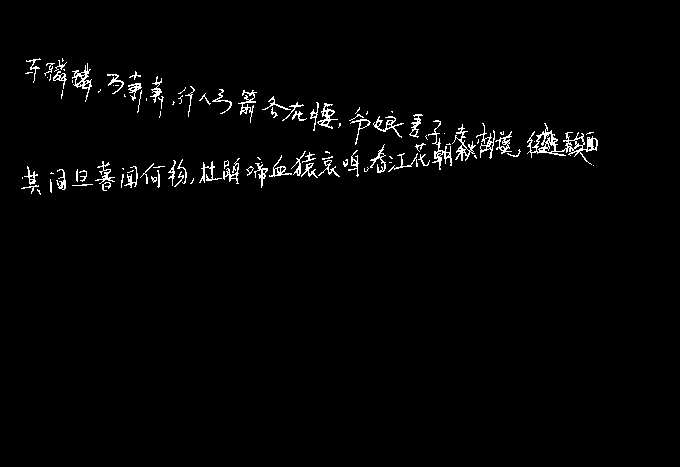 车辚辚,马萧萧,行人弓箭各在腰,爷娘妻子
其间旦暮闻何物,杜鹃啼血猿哀鸣。春江花朝秋